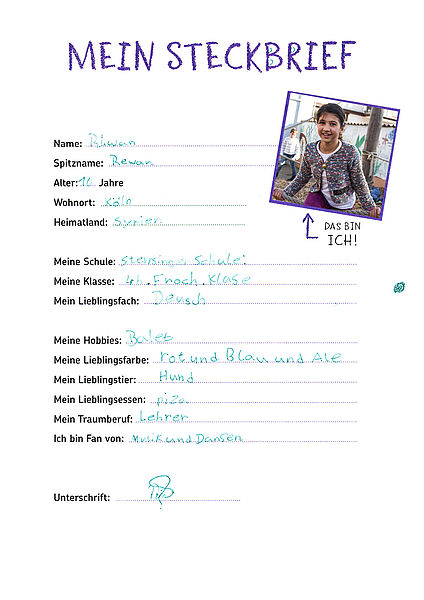 MEIN STECKBRIEF
Name: Rhwan
Spitzname: Rewan
Alter: 10 Jahre
Wohnort: Köln
Heimatland: Syrien
DAS BIN
ICH!
Meine Schule: Schule
Meine Klasse: 4h. Klase
Mein Lieblingsfach: Deusch
Meine Hobbies: Baleb
Meine Lieblingsfarbe: rot und Blau und Ale
Mein Lieblingstier: Hund
Mein Lieblingsessen: piza
Mein Traumberuf: Lehrer
Ich bin Fan von: Musik und Dansen
Unterschrift: